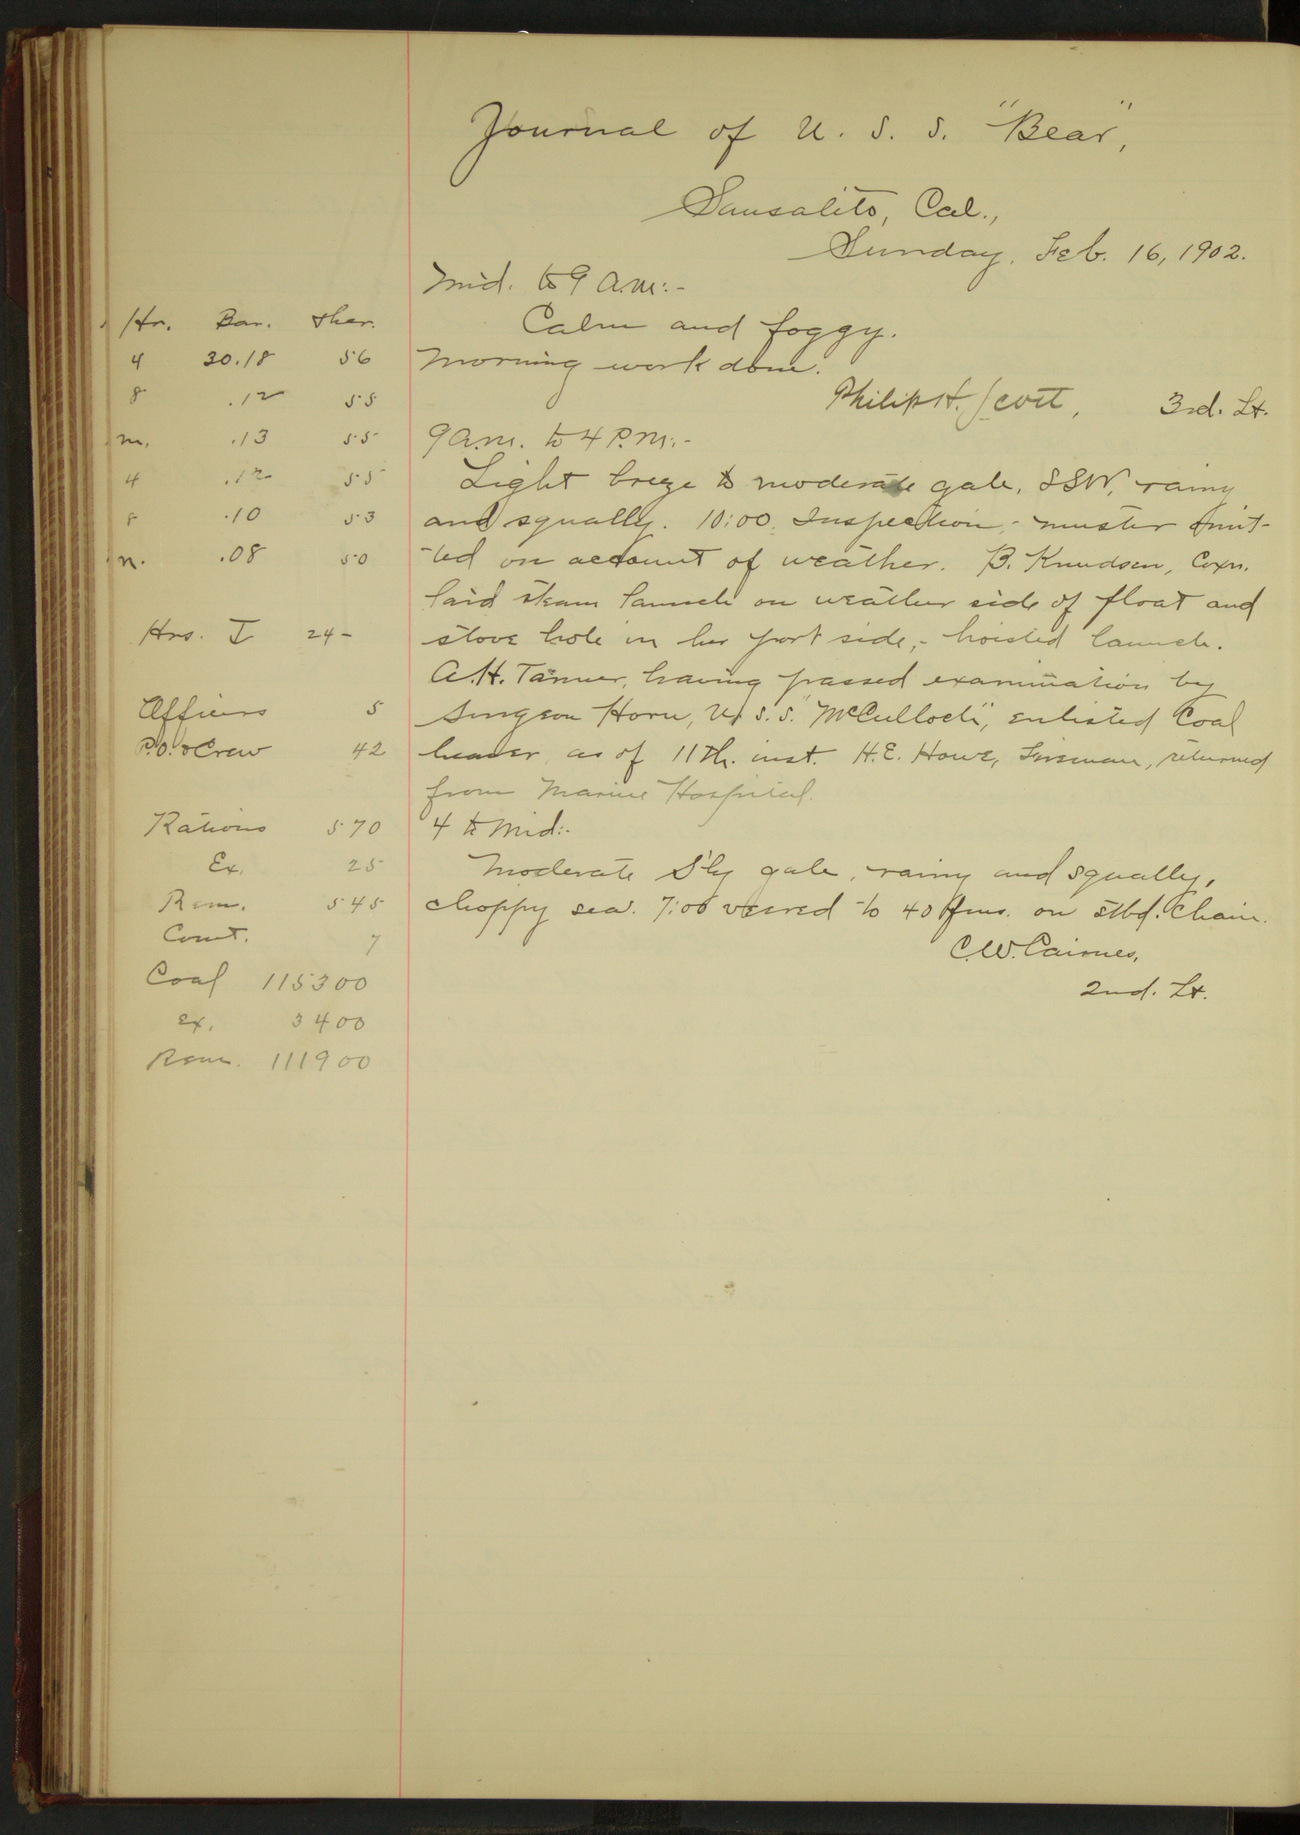 Journal of U. S. S. "Bear",
Sausalito, Cal.,
Sunday, Feb. 16, 1902.
Mid. to 9 a.m:-
Calm and foggy.
Morning work done.
Philip H. Scott, 3rd. Lt.
9 a.m. to 4 P.m:-
Light breeze to moderate gale, SSW, rainy
and squally. 10:00 Inspection,- muster omit-
-ted on account of weather. B. Knudsen, Coxn.
laid steam launch on weather side of float and
stove hole in her port side,- hoisted launch.
A.H. Tanner, having passed examination by
Surgeon Horn, U.S.S. "McCulloch", enlisted Coal
heaver as of 11th. inst. H.E. Howe, Fireman, returned
from Marine Hospital.
4 to Mid:-
Moderate S'ly gale, rainy and squally,
choppy sea. 7:00 veered to 40 fms. on stbd. Chain.
C.W. Cairnes,
2nd. Lt.
Hr. Bar. Ther.
4 30.18 56
8 .12 55
m. .13 55
4 .12 55
8 .10 53
n. .08 50
Hrs. I 24-
Officers 5
P.O. & Crew 42
Rations 570
Ex. 25
Rem. 545
Comt. 7
Coal 115300
Ex. 3400
Rem. 111900